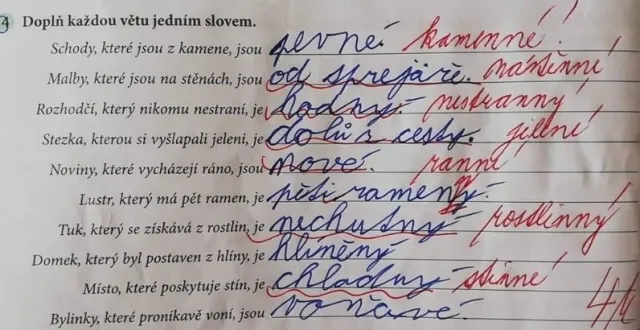 4 Doplň každou větu jedním slovem.
Schody, které jsou z kamene, jsou pevné. kamenné!
Malby, které jsou na stěnách, jsou od sprejáře. nástěnné!
Rozhodčí, který nikomu nestraní, je hodný. nestranný!
Stezka, kterou si vyšlapali jeleni, je dolů z cesty. jelení!
Noviny, které vycházejí ráno, jsou nové. ranní!
Lustr, který má pět ramen, je pětiramený.
Tuk, který se získává z rostlin, je nechutný rostlinný!
Domek, který byl postaven z hlíny, je hliněný
Místo, které poskytuje stín, je chladný stinné!
Bylinky, které pronikavě voní, jsou voňavé.